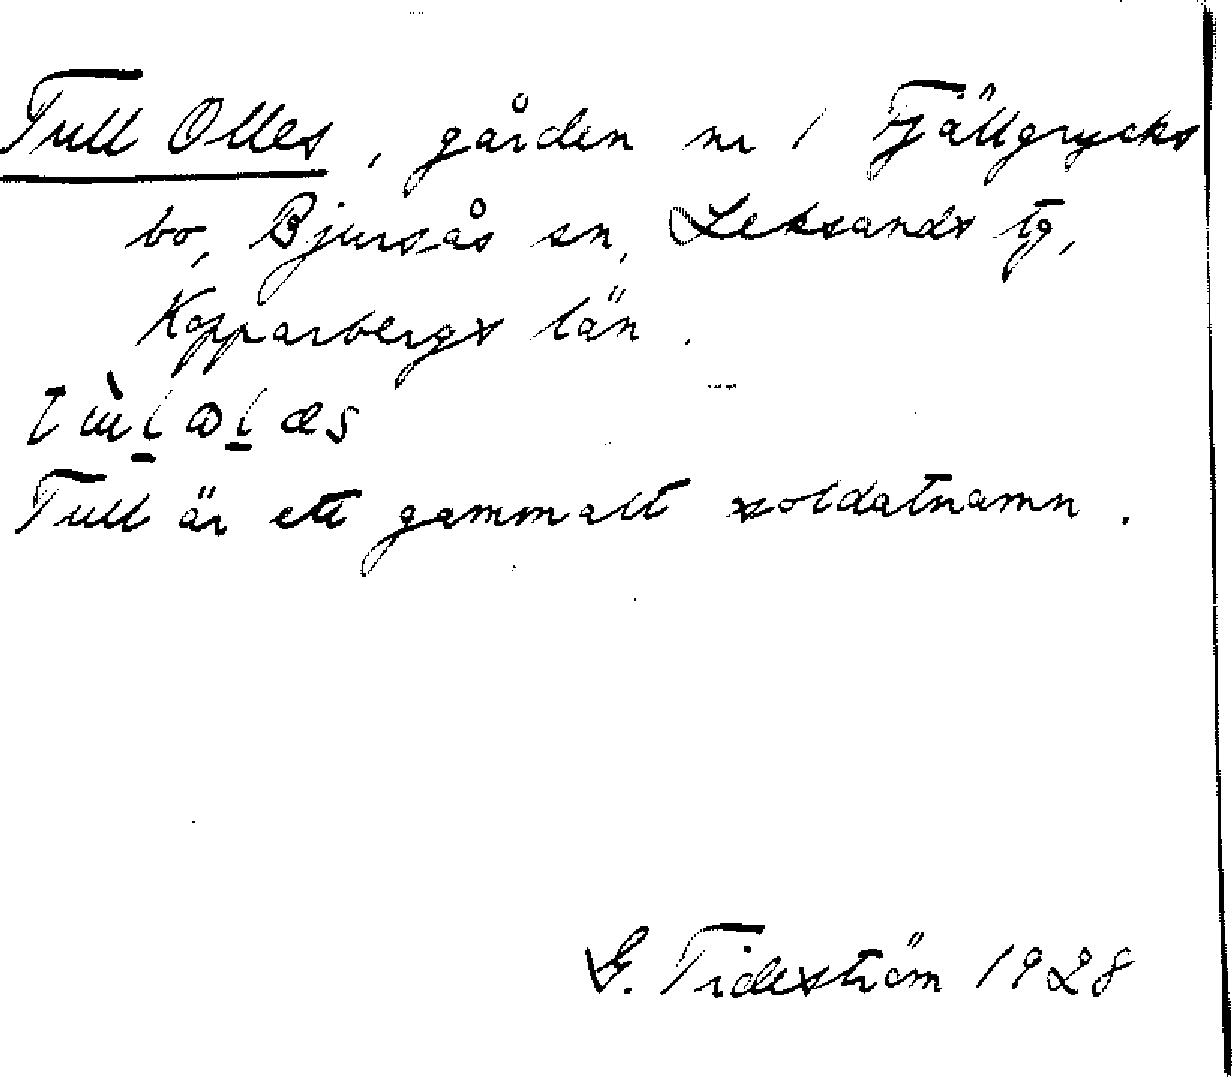 Tull Olles, gården nr 1 Fjällgrycks
bo, Bjursås sn, Leksands tg,
Kopparbergs län.
Tull är ett gammalt soldatnamn.
G. Tideström 1928